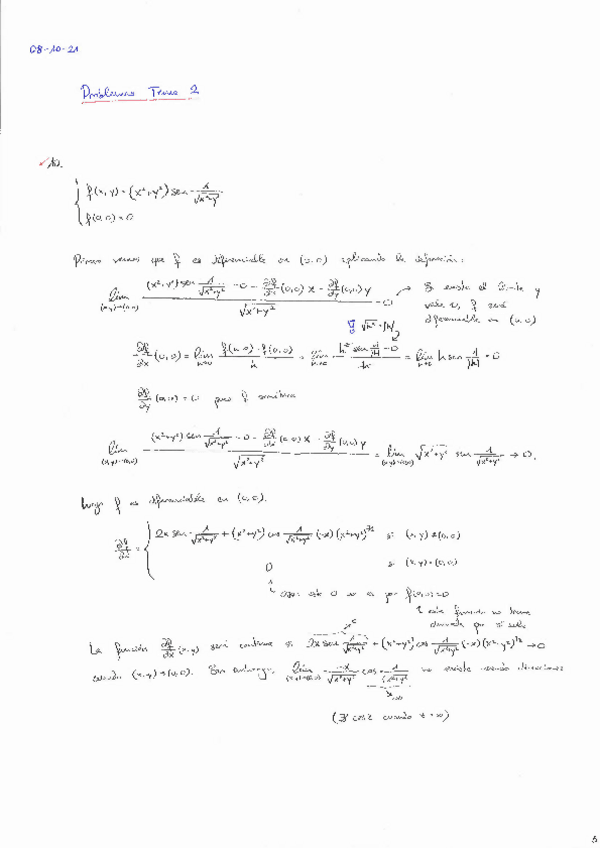 08-10-21
Problemas Tema 2
10.
f(x,y) = (x²+y²) sen 1/√(x²+y²)
f(0,0) = 0
Primero vemos que f es diferenciable en (0,0) aplicando la definición:
lim (x,y)→(0,0) ((x²+y²) sen 1/√(x²+y²) - 0 - ∂f/∂x (0,0) x - ∂f/∂y (0,0) y) / √(x²+y²) = 0 → Si existe el límite y
vale 0, f será
diferenciable en (0,0)
√h² = |h|
∂f/∂x (0,0) = lim h→0 (f(h,0) - f(0,0))/h = lim h→0 (h² sen 1/|h| - 0)/h = lim h→0 h sen 1/|h| = 0
∂f/∂y (0,0) = 0 pues f simétrica
lim (x,y)→(0,0) ((x²+y²) sen 1/√(x²+y²) - 0 - ∂f/∂x (0,0) x - ∂f/∂y (0,0) y) / √(x²+y²) = lim (x,y)→(0,0) √(x²+y²) sen 1/√(x²+y²) → 0.
Luego f es diferenciable en (0,0).
∂f/∂x = 2x sen 1/√(x²+y²) + (x²+y²) cos 1/√(x²+y²) (-x)(x²+y²)^3/2 si (x,y) ≠ (0,0)
0 si (x,y) = (0,0)
este 0 no es por f(0,0) = 0
La función ∂f/∂x (x,y) será continua si 2x sen 1/√(x²+y²) + (x²+y²) cos 1/√(x²+y²) (-x)(x²+y²)^3/2 → 0
cuando (x,y) → (0,0). Sin embargo, lim (x,y)→(0,0) -x/√(x²+y²) cos 1/√(x²+y²) no existe
(∄ cos z cuando z → ∞)
5